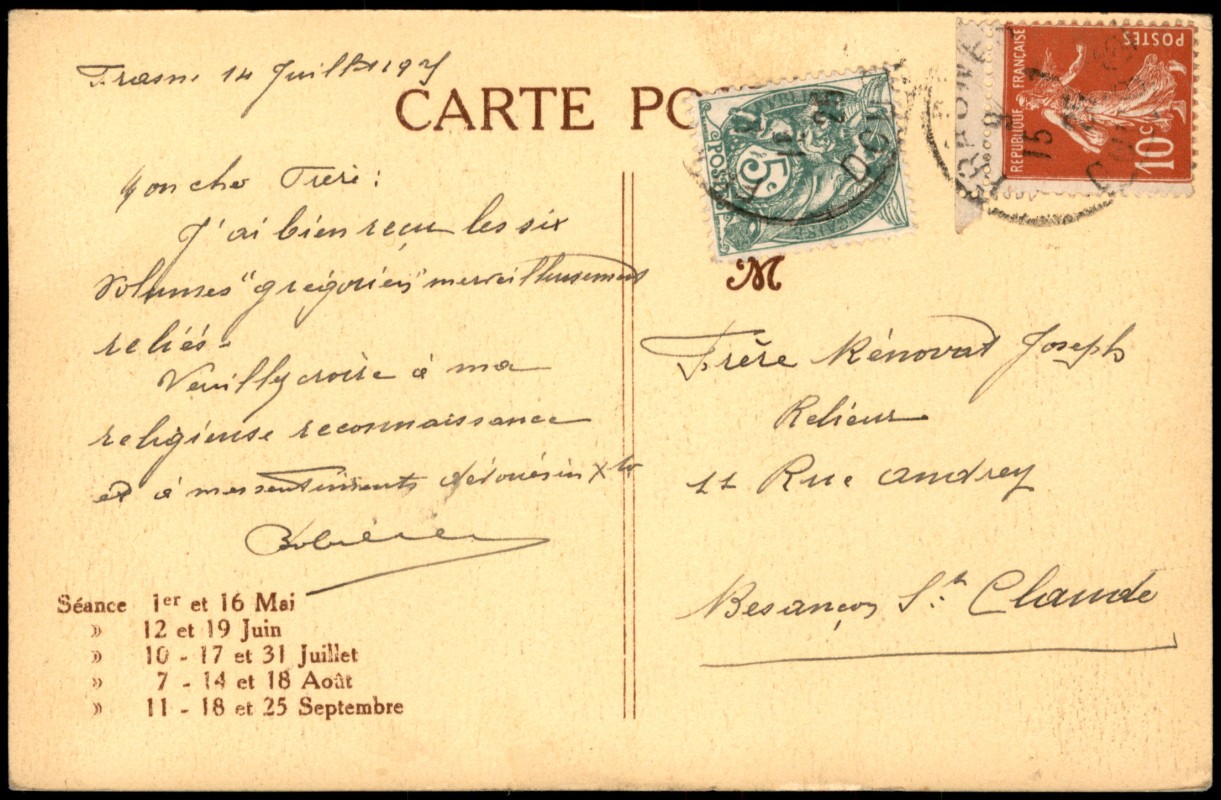 Frasne 14 Juillet 1925
CARTE PO
Mon cher Frère :
J'ai bien reçu les six
volumes "grégorien" merveilleusement
reliés.
Veuillez croire à ma
religieuse reconnaissance
et à mes sentiments dévoués in X to
Séance 1er et 16 Mai
» 12 et 19 Juin
» 10 - 17 et 31 Juillet
» 7 - 14 et 18 Août
» 11 - 18 et 25 Septembre
POSTES
5
REPUBLIQUE FRANÇAISE
POSTES
10c
M
Frère Rénovat Joseph
Relieur
11 Rue Andrey
Besançon St. Claude